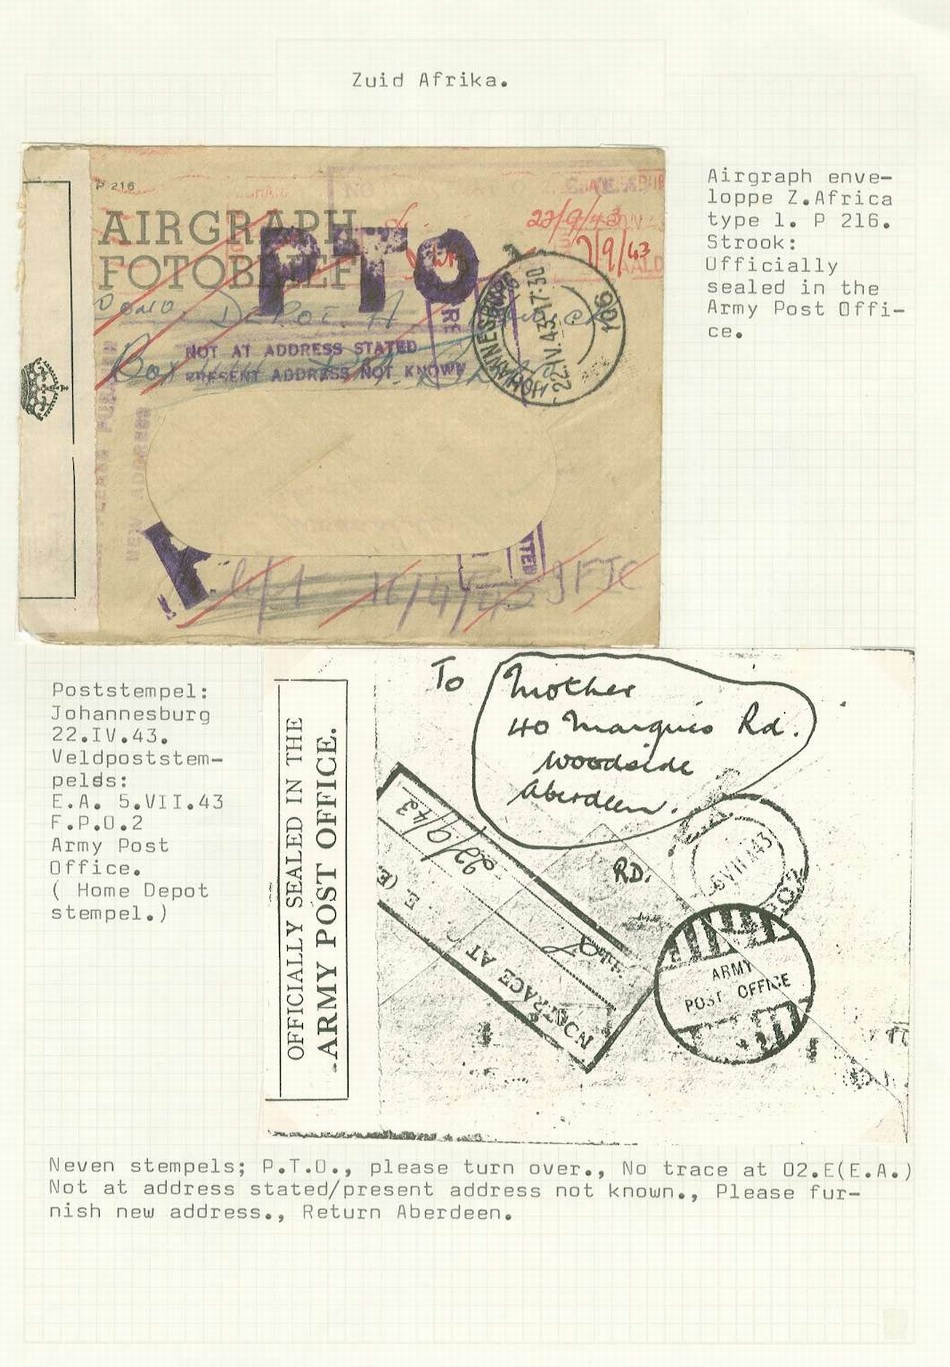 Zuid Afrika.
P 216
AIRGRAPH
FOTOBRIEF
PTO
22/9/43
7/9/43
DEPOT. A
Box
NOT AT ADDRESS STATED
PRESENT ADDRESS NOT KNOWN
JOHANNESBURG
22.IV.43.17:30
106
NEW ADDRESS
16/4/43
Airgraph enve-
loppe Z.Africa
type 1. P 216.
Strook:
Officially
sealed in the
Army Post Offi-
ce.
Poststempel:
Johannesburg
22.IV.43.
Veldpoststem-
pelds:
E.A. 5.VII.43
F.P.O.2
Army Post
Office.
( Home Depot
stempel.)
OFFICIALLY SEALED IN THE
ARMY POST OFFICE.
To Mother
40 Marquis Rd.
Woodside
Aberdeen.
RD.
22/9/43
NO TRACE AT
ARMY
POST OFFICE
Neven stempels; P.T.O., please turn over., No trace at O2.E(E.A.)
Not at address stated/present address not known., Please fur-
nish new address., Return Aberdeen.